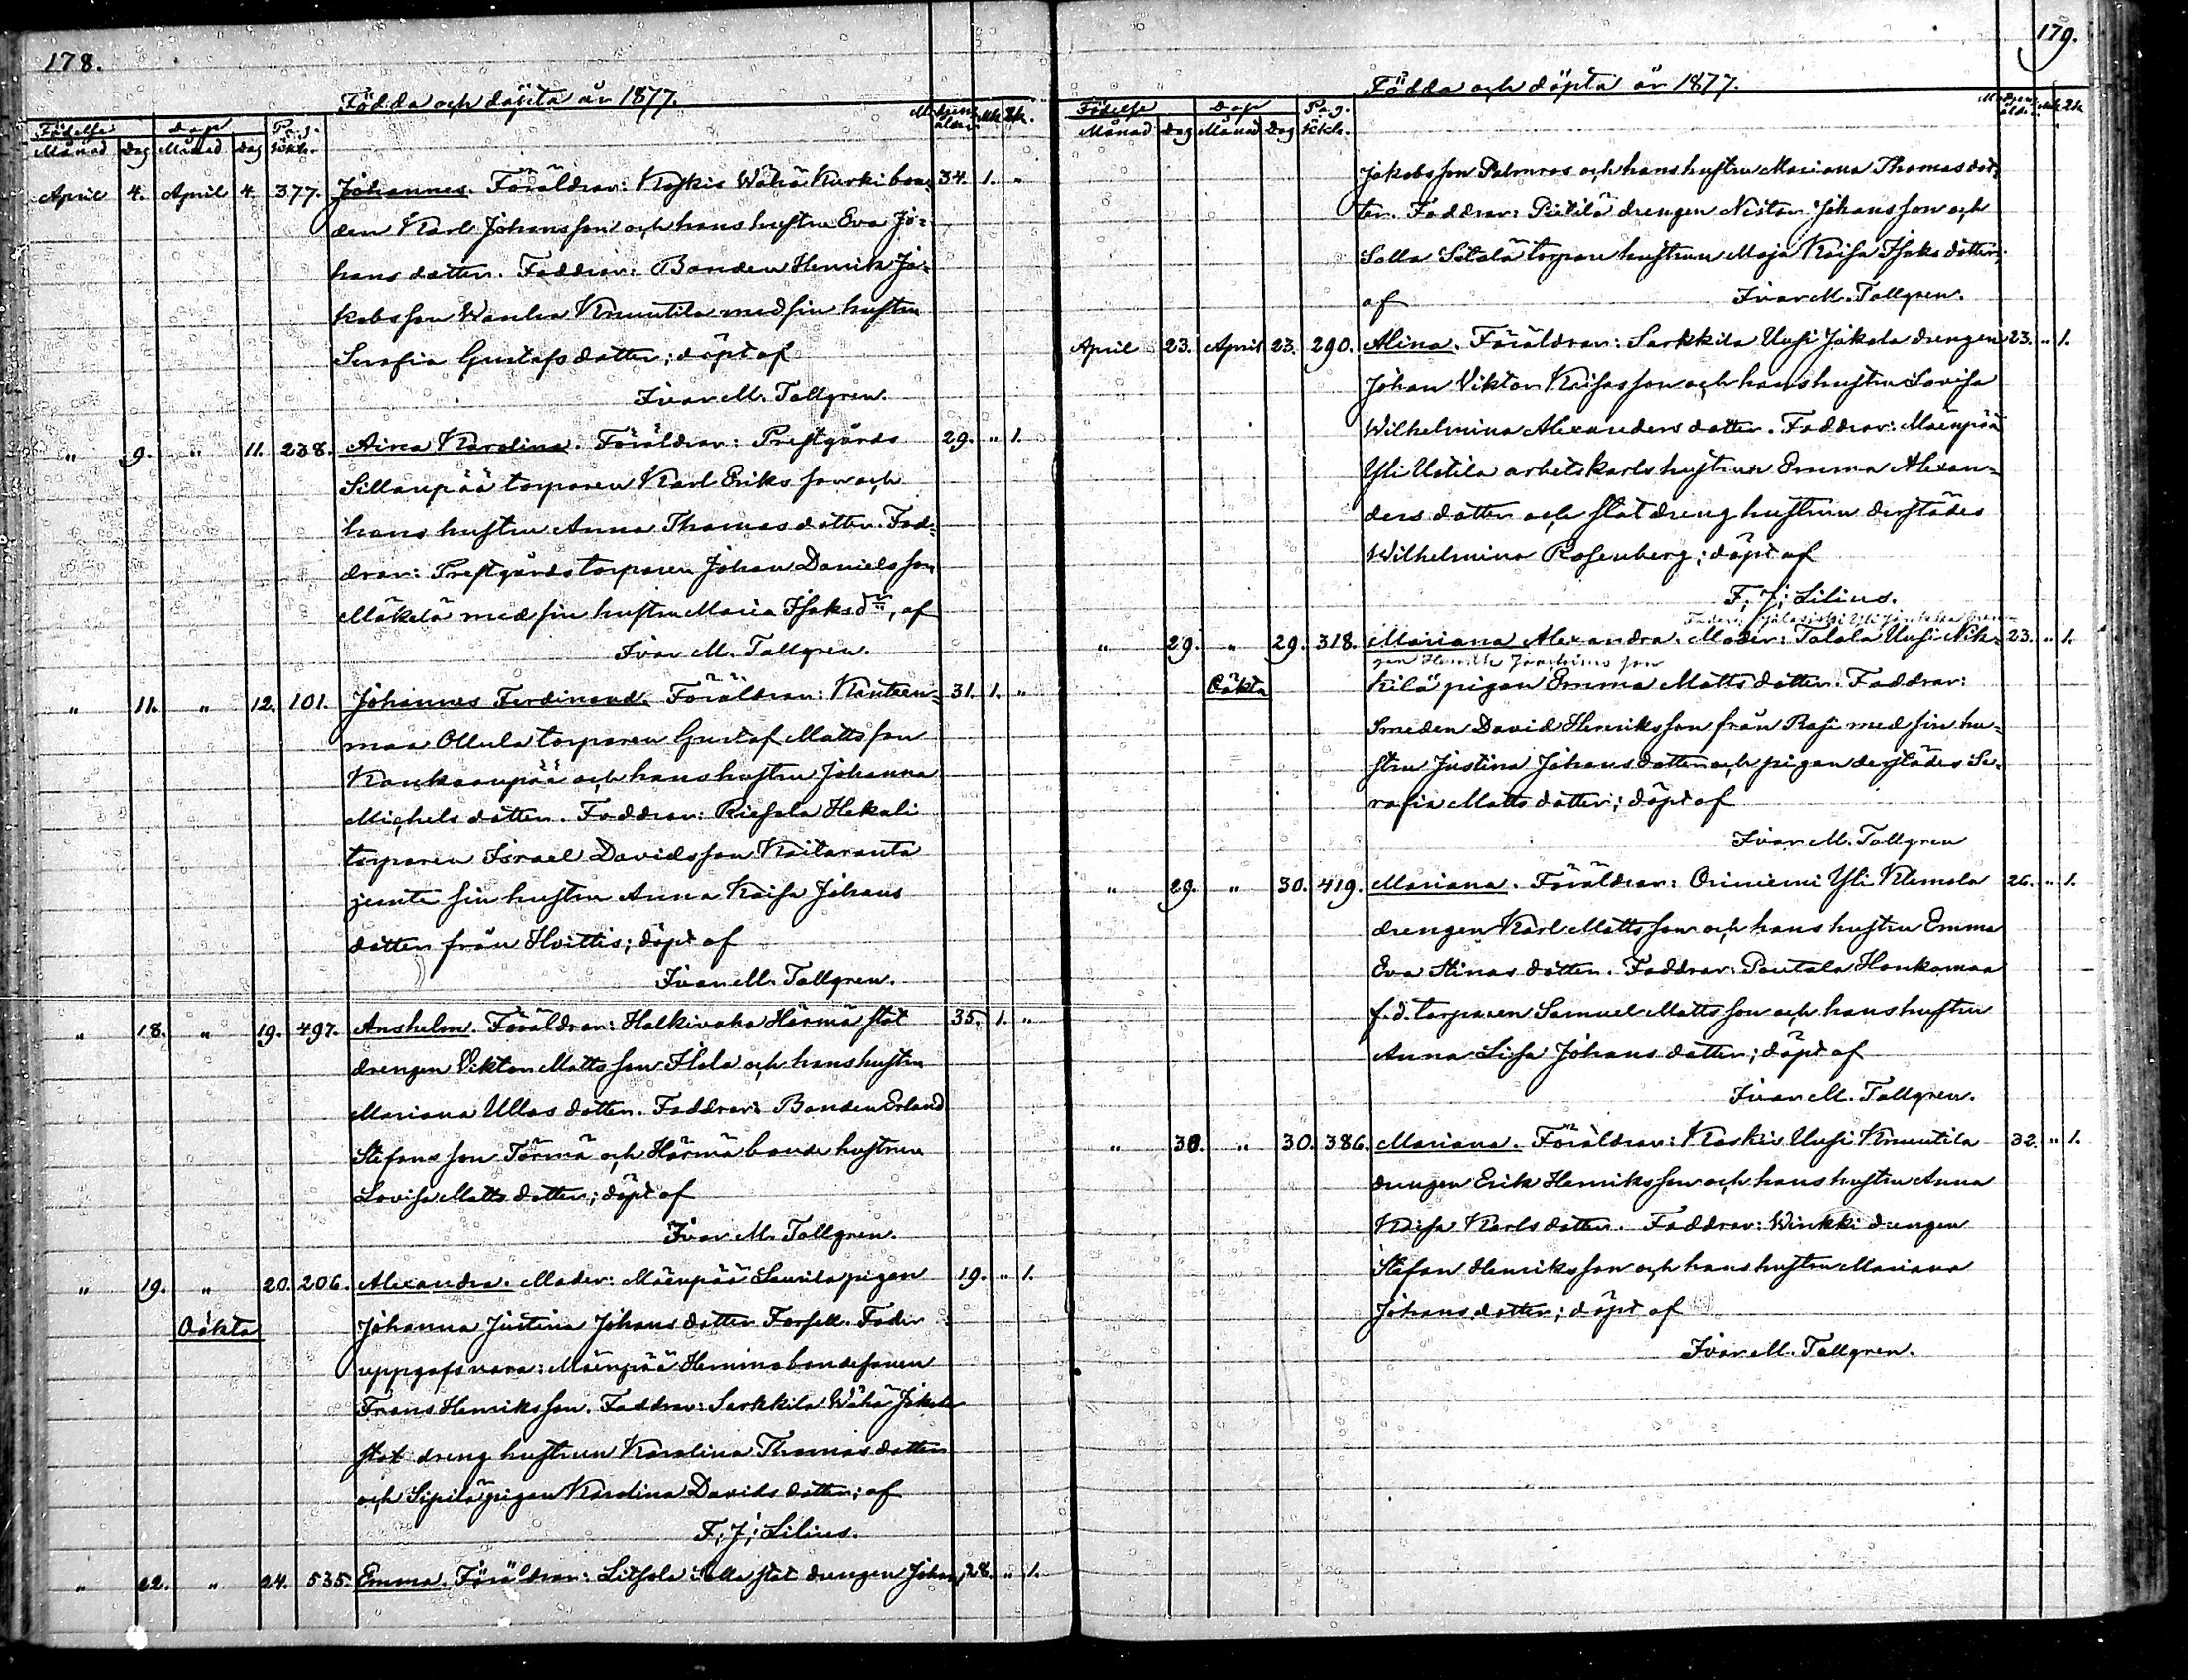 178.
Födda och döpta år 1877.
Födelse Dop Pag. Moderns ålder Mk. Qk.
Månad Dag Månad Dag
April 4. April 4. 377. Johannes. Föräldrar: Koskis Wähä Kurki bon= 34. 1. "
den Karl Johansson och hans hustru Eva Jo=
hans dotter. Faddrar: Bonden Henrik Ja=
kobsson Wanha Knuutila med sin hustru
Serafia Gustafsdotter; döpt af
Ivar M. Tallgren.
" 9. " 11. 238. Aina Karolina. Föräldrar: Prestgårds 29. " 1.
Sillanpää torparen Karl Eriksson och
hans hustru Anna Thomasdotter. Fad=
drar: Prestgårdstorparen Johan Danielsson
Mäkelä med sin hustru Maria Isaksdr, af
Ivar M. Tallgren.
" 11. " 12. 101. Johannes Ferdinand. Föräldrar: Kanteen= 31. 1. "
maa Ollula torparen Gustaf Mattsson
Kaukaanpää och hans hustru Johanna
Michelsdotter. Faddrar: Riesola Hekali
torparen Israel Davidsson Raitaranta
jemte sin hustru Anna Kaisa Johans
dotter från Hvittis; döpt af
Ivar M. Tallgren.
" 18. " 19. 497. Anshelm. Föräldrar: Halkivaha Härmä stat 35. 1. "
drengen Viktor Mattsson Flola och hans hustru
Mariana Ullasdotter. Faddrar: Bonden Erland
Stefansson Törmä och Härmä bondehustrun
Lovisa Mattsdotter; döpt af
Ivar M. Tallgren.
" 19. " 20. 206. Alexandra. Moder: Mäenpää Laurila pigan 19. " 1.
Oäkta Johanna Justina Johansdotter Forsell. Fader
uppgafs vara: Mäenpää Hemina bondesonen
Frans Henriksson. Faddrar: Sarkkila Wähä Jakola
stat dreng hustrun Karolina Thomasdotter
och Sipilä pigan Karolina Davidsdotter; af
F. J. Lilius.
" 22. " 24. 535. Emma. Föräldrar: Litsola Salla stat drengen Johan 28. " 1.
179.
Födda och döpta år 1877.
Födelse Dop Pag. Moderns ålder Mk. Qk.
Månad Dag Månad Dag
Jakobsson Palmros och hans hustru Mariana Thomasdot=
ter. Faddrar: Pietilä drengen Nestor Johansson och
Salla Sitolä torpare hustrun Maja Kaisa Isaksdotter;
af Ivar M. Tallgren.
April 23. April 23. 290. Alina. Föräldrar: Sarkkila Uusi Jakola drengen 23. " 1.
Johan Viktor Kaisasson och hans hustru Lovisa
Wilhelmina Alexandersdotter. Faddrar: Mäenpää
Yli Uotila arbetskarls hustrun Emma Alexan=
dersdotter och stat dreng hustrun derstädes
Wilhelmina Rosenberg; döpt af
F. J. Lilius.
" 29. " 29. 318. Mariana Alexandra. Moder: Talala Uusi Nik= 23. " 1.
Oäkta kilä pigan Emma Mattsdotter. Faddrar:
Smeden David Henriksson från Raji med sin hu=
stru Justina Johansdotter och pigan derstädes Se=
rafia Mattsdotter; döpt af
Ivar M. Tallgren
" 29. " 30. 419. Mariana. Föräldrar: Oriniemi Yli Klemola 26. " 1.
drengen Karl Mattsson och hans hustru Emma
Eva Stinasdotter. Faddrar: Poutala Honkamaa
f. d. torparen Samuel Mattsson och hans hustru
Anna Lisa Johansdotter; döpt af
Ivar M. Tallgren.
" 30. " 30. 386. Mariana. Föräldrar: Koskis Uusi Knuutila 32. " 1.
drengen Erik Henriksson och hans hustru Anna
Kaisa Karlsdotter. Faddrar: Winkki drengen
Stefan Henriksson och hans hustru Mariana
Johansdotter; döpt af
Ivar M. Tallgren.